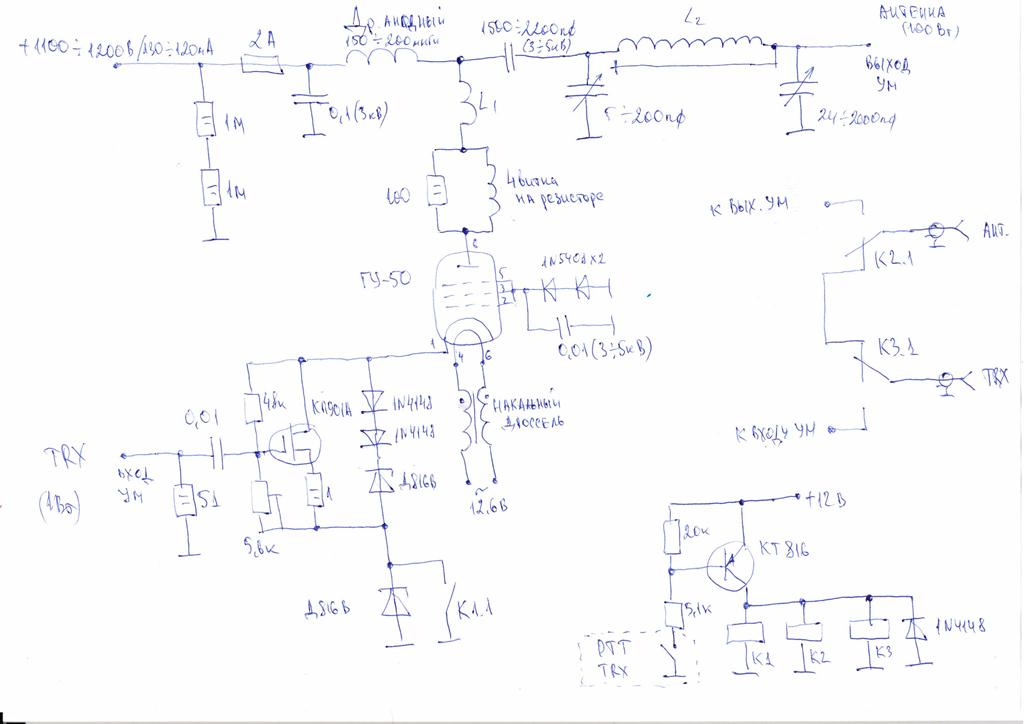 +1100÷1200В/130÷120мА
2А
Др. анодный
150÷200мкГн
1500÷2200пф
(3÷5кВ)
L2
АНТЕННА
(100Вт)
ВЫХОД
УМ
0,1(3кВ)
L1
5÷200пф
24÷2000пф
1М
1М
100
4 витка
на резисторе
8
ГУ-50
5
3
2
1N5408×2
0,01(3÷5кВ)
1
4
6
К ВЫХ. УМ
АНТ.
К2.1
К3.1
TRX
К ВХОДУ УМ
48к
КП901А
1N4148
1N4148
НАКАЛЬНЫЙ
ДРОССЕЛЬ
0,01
TRX
ВХОД
УМ
(1Вт)
51
1
Д816В
~
12,6В
5,1к
Д816В
К1.1
+12В
20к
КТ816
5,1к
PTT
TRX
К1
К2
К3
1N4148